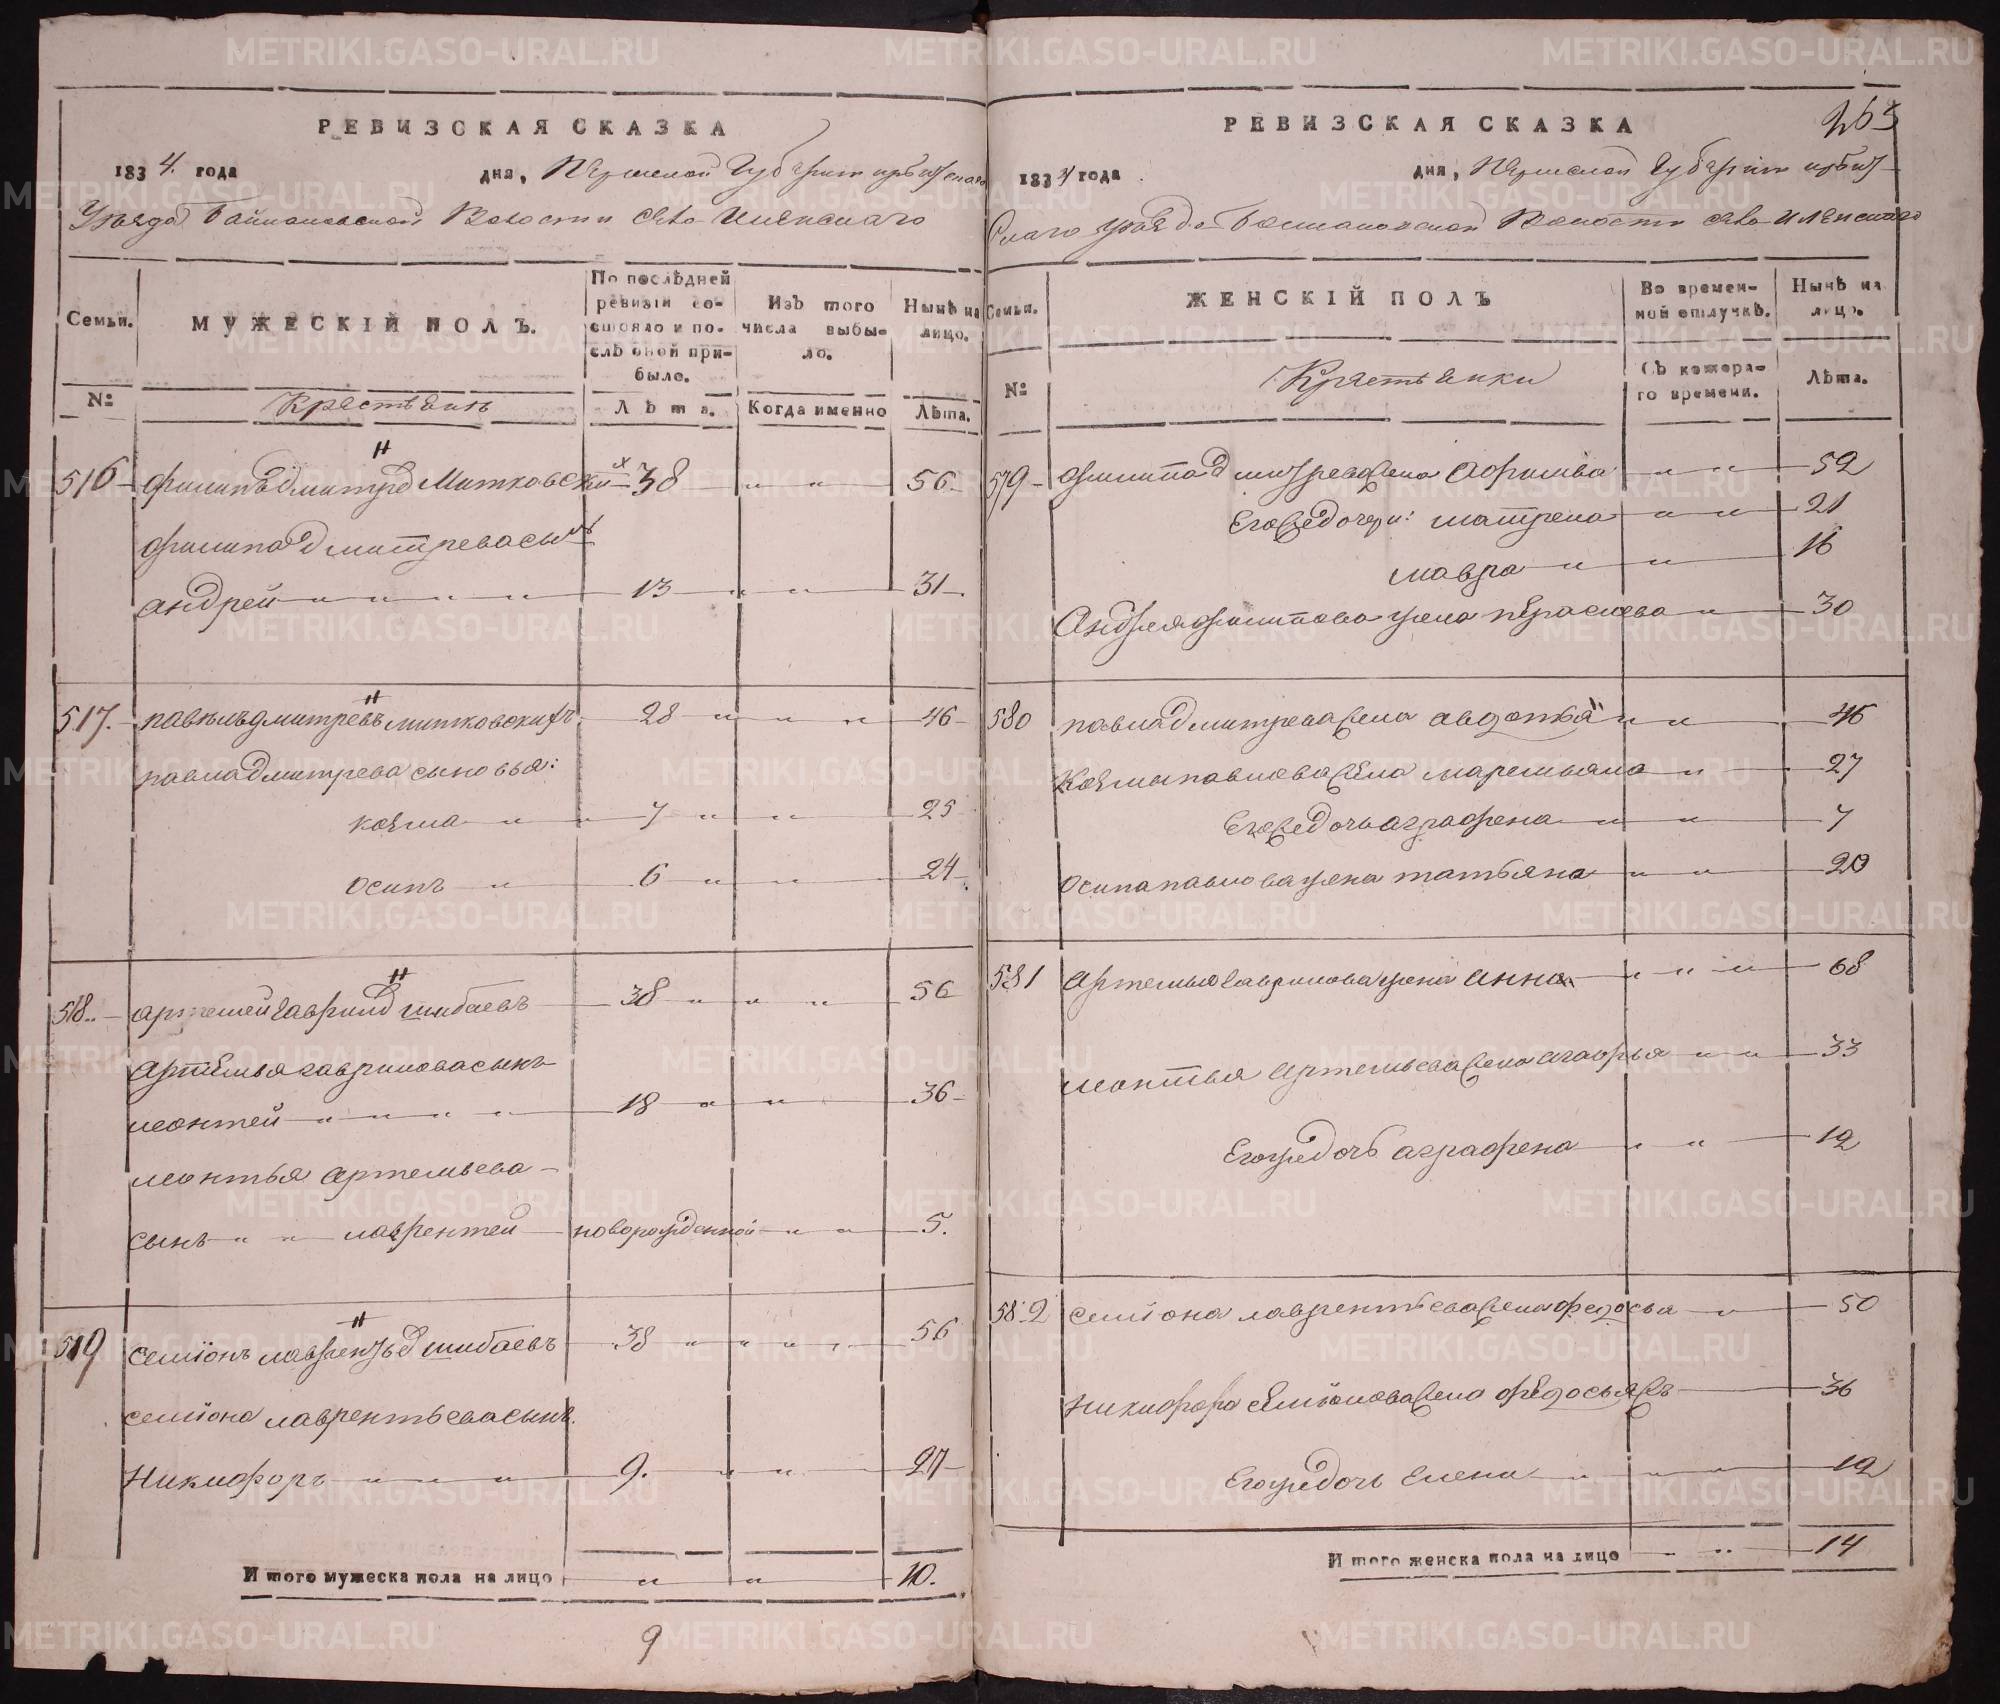 РЕВИЗСКАЯ СКАЗКА
1834. года дня, Пермской Губернии ирбитскаго
Уѣзда Волости села
Семьи. МУЖЕСКІЙ ПОЛЪ. По послѣдней ревизіи состояло и послѣ оной прибыло. Изъ того числа выбыло. Нынѣ на лицо.
№ Крестьянъ Лѣта. Когда именно Лѣта.
516 филипъ дмитрев Митковских 38 " " 56
филипа дмитрева сынъ
андрей " " " " 13 " " 31
517. павелъ дмитревъ митковскихъ 28 " " " 46
павла дмитрева сыновья:
козма " " 7 " " 25
осипъ " 6 " " 24
518. артемей гаврилов шибаевъ 38 " " " 56
артемья гаврилова сынъ
леонтей " " " " 18 " " 36
леонтья артемьева
сынъ " " лаврентей новорожденной " " 5.
519 семіонъ лаврентьев шибаевъ 38 " " " " 56
семіона лаврентьева сынъ
Никифоръ " " " 9. " " 27
Итого мужеска пола на лицо " " 10.
9
265
РЕВИЗСКАЯ СКАЗКА
1834 года дня, Пермской Губернии ирбит-
скаго уѣзда Волости села
Семьи. ЖЕНСКІЙ ПОЛЪ Во временной отлучкѣ. Нынѣ на лицо.
№ Крестьянки Съ котораго времени. Лѣта.
579 филипа дмитрева жена Афимья " " 52
Его же дочери: матрена " " 21
мавра " " 16
Андрея филипова жена " 30
580 павла дмитрева жена авдотья " " 45
Козмы павлова жена маремьяна " 27
Его же дочь аграфена " " 7
осипа павлова жена татьяна " " 20
581 артемья гаврилова жена анна " " " 68
леонтья артемьева жена агафья " " 33
Его же дочь аграфена " " 12
582 семіона лаврентьева жена федосья " 50
Никифора семіонова жена федосья 36
Его же дочь елена " " " 12
Итого женска пола на лицо " 14
METRIKI.GASO-URAL.RU